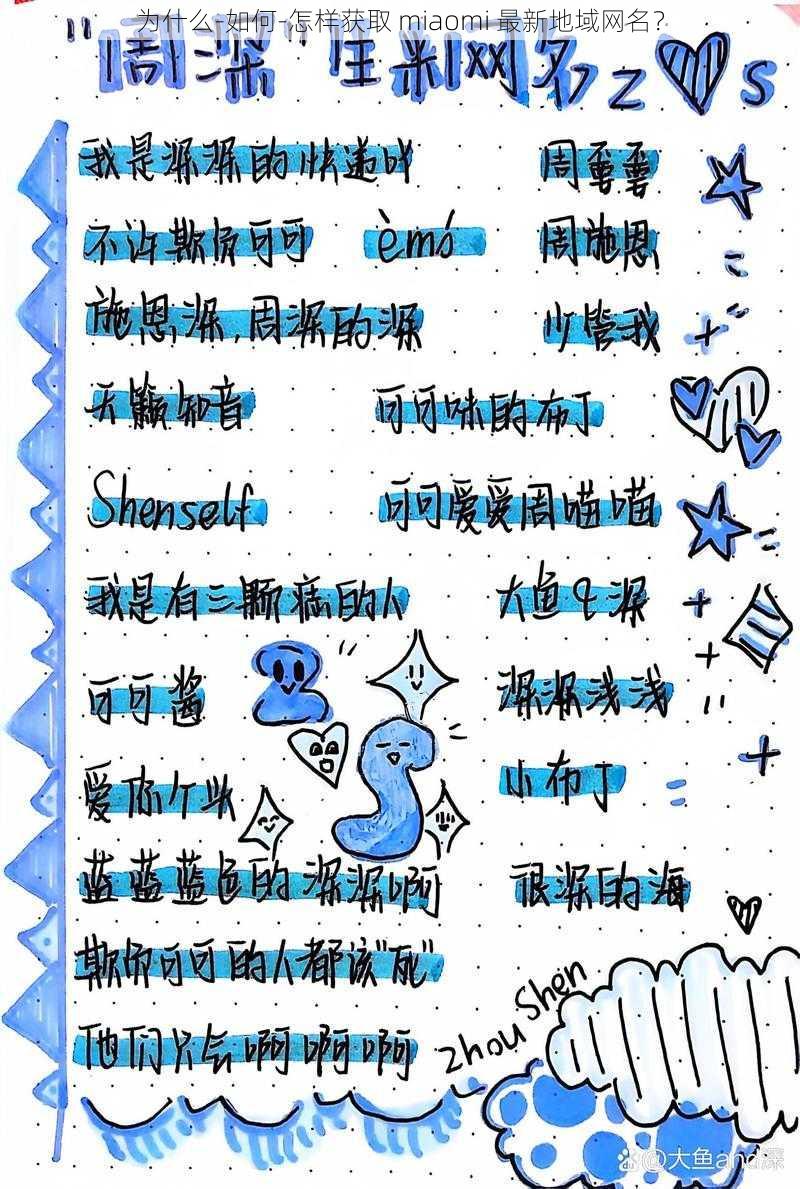 为什么-如何-怎样获取 miaomi 最新地域网名？
"周深"生米网名 Z S
我是深深的快递吖 周霎霎
不许欺负可可 èmó 周施恩
施恩深,周深的深 少管我
天籁知音 可可味的布丁
Shenself 可可爱爱周喵喵
我是有三颗痣的人 大鱼&深
可可酱 深深浅浅
爱你个头 小布丁
蓝蓝蓝色的深深啊 很深的海
欺负可可的人都该"死"
他们只会啊啊啊
Zhou Shen
@大鱼and深